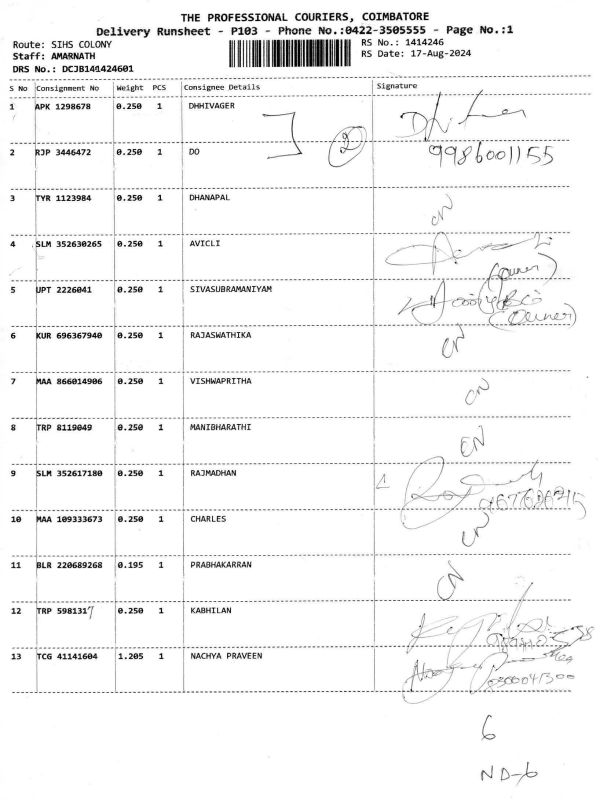 THE PROFESSIONAL COURIERS, COIMBATORE
Delivery Runsheet - P103 - Phone No.:0422-3505555 - Page No.:1
Route: SIHS COLONY
RS No.: 1414246
Staff: AMARNATH
RS Date: 17-Aug-2024
DRS No.: DCJB141424601
S No Consignment No Weight PCS Consignee Details Signature
1 APK 1298678 0.250 1 DHHIVAGER
2
2 RJP 3446472 0.250 1 DO 9986001155
3 TYR 1123984 0.250 1 DHANAPAL CN
4 SLM 352630265 0.250 1 AVICLI
(owner)
5 UPT 2226041 0.250 1 SIVASUBRAMANIYAM
(owner)
6 KUR 696367940 0.250 1 RAJASWATHIKA CN
7 MAA 866014906 0.250 1 VISHWAPRITHA CN
8 TRP 8119049 0.250 1 MANIBHARATHI CN
9 SLM 352617180 0.250 1 RAJMADHAN
10 MAA 109333673 0.250 1 CHARLES CN
11 BLR 220689268 0.195 1 PRABHAKARRAN CN
12 TRP 5981317 0.250 1 KABHILAN
13 TCG 41141604 1.205 1 NACHYA PRAVEEN
6
ND-6